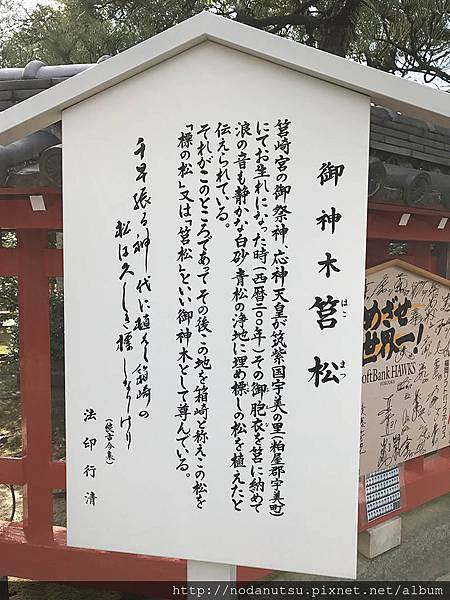 御神木 筥松
はこ まつ
筥崎宮の御祭神、応神天皇が筑紫国宇美の里(粕屋郡宇美町)
にてお生れになった時(西暦二〇〇年)その御胞衣を筥に納めて
浪の音も静かな白砂青松の浄地に埋め標しの松を植えたと
伝えられている。
それがこのところであって その後この地を箱崎と称え、この松を
「標の松」又は「筥松」といい御神木として尊んでいる。
千早振る神代に植えし箱崎の
松は久しき標しなりけり
(続古今集)
法印行清
めざせ
世界一!
SoftBank HAWKS
FUKUOKA
http://nodanutsu.pixnet.net/album